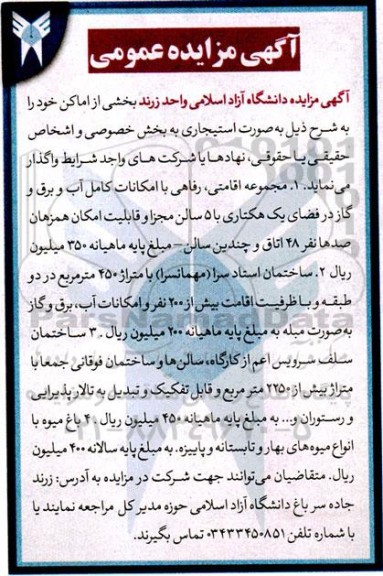 آگهی مزایده عمومی
آگهی مزایده دانشگاه آزاد اسلامی واحد زرند بخشی از اماکن خود را
به شرح ذیل به صورت استیجاری به بخش خصوصی و اشخاص
حقیقی یا حقوقی، نهادها یا شرکت های واجد شرایط واگذار
می نماید. ۱. مجموعه اقامتی، رفاهی با امکانات کامل آب و برق و
گاز در فضای یک هکتاری با ۵ سالن مجزا و قابلیت امکان همزهان
صدها نفر ۴۸ اتاق و چندین سالن - مبلغ پایه ماهیانه ۳۵۰ میلیون
ریال ۲. ساختمان استاد سرا (مهمانسرا) با متراژ ۴۵۰ مترمربع در دو
طبقه و با ظرفیت اقامت بیش از ۲۰۰ نفر و امکانات آب، برق و گاز
به صورت مبله به مبلغ پایه ماهیانه ۲۰۰ میلیون ریال. ۳ ساختمان
سلف سرویس اعم از کارگاه، سالن ها و ساختمان فوقانی جمعا با
متراژ بیش از ۲۲۵۰ متر مربع و قابل تفکیک و تبدیل به تالار پذیرایی
و رستوران و... به مبلغ پایه ماهیانه ۴۵۰ میلیون ریال ۴. باغ میوه با
انواع میوه های بهار و تابستانه و پاییزه. به مبلغ پایه سالانه ۴۰۰ میلیون
ریال. متقاضیان می توانند جهت شرکت در مزایده به آدرس: زرند
جاده سر باغ دانشگاه آزاد اسلامی حوزه مدیر کل مراجعه نمایند یا
با شماره تلفن ۰۳۴۳۳۴۵۰۸۵۱ تماس بگیرند.
ParsNamadData
۰۲۱-۸۸۳۴۹۶۷۰-۵